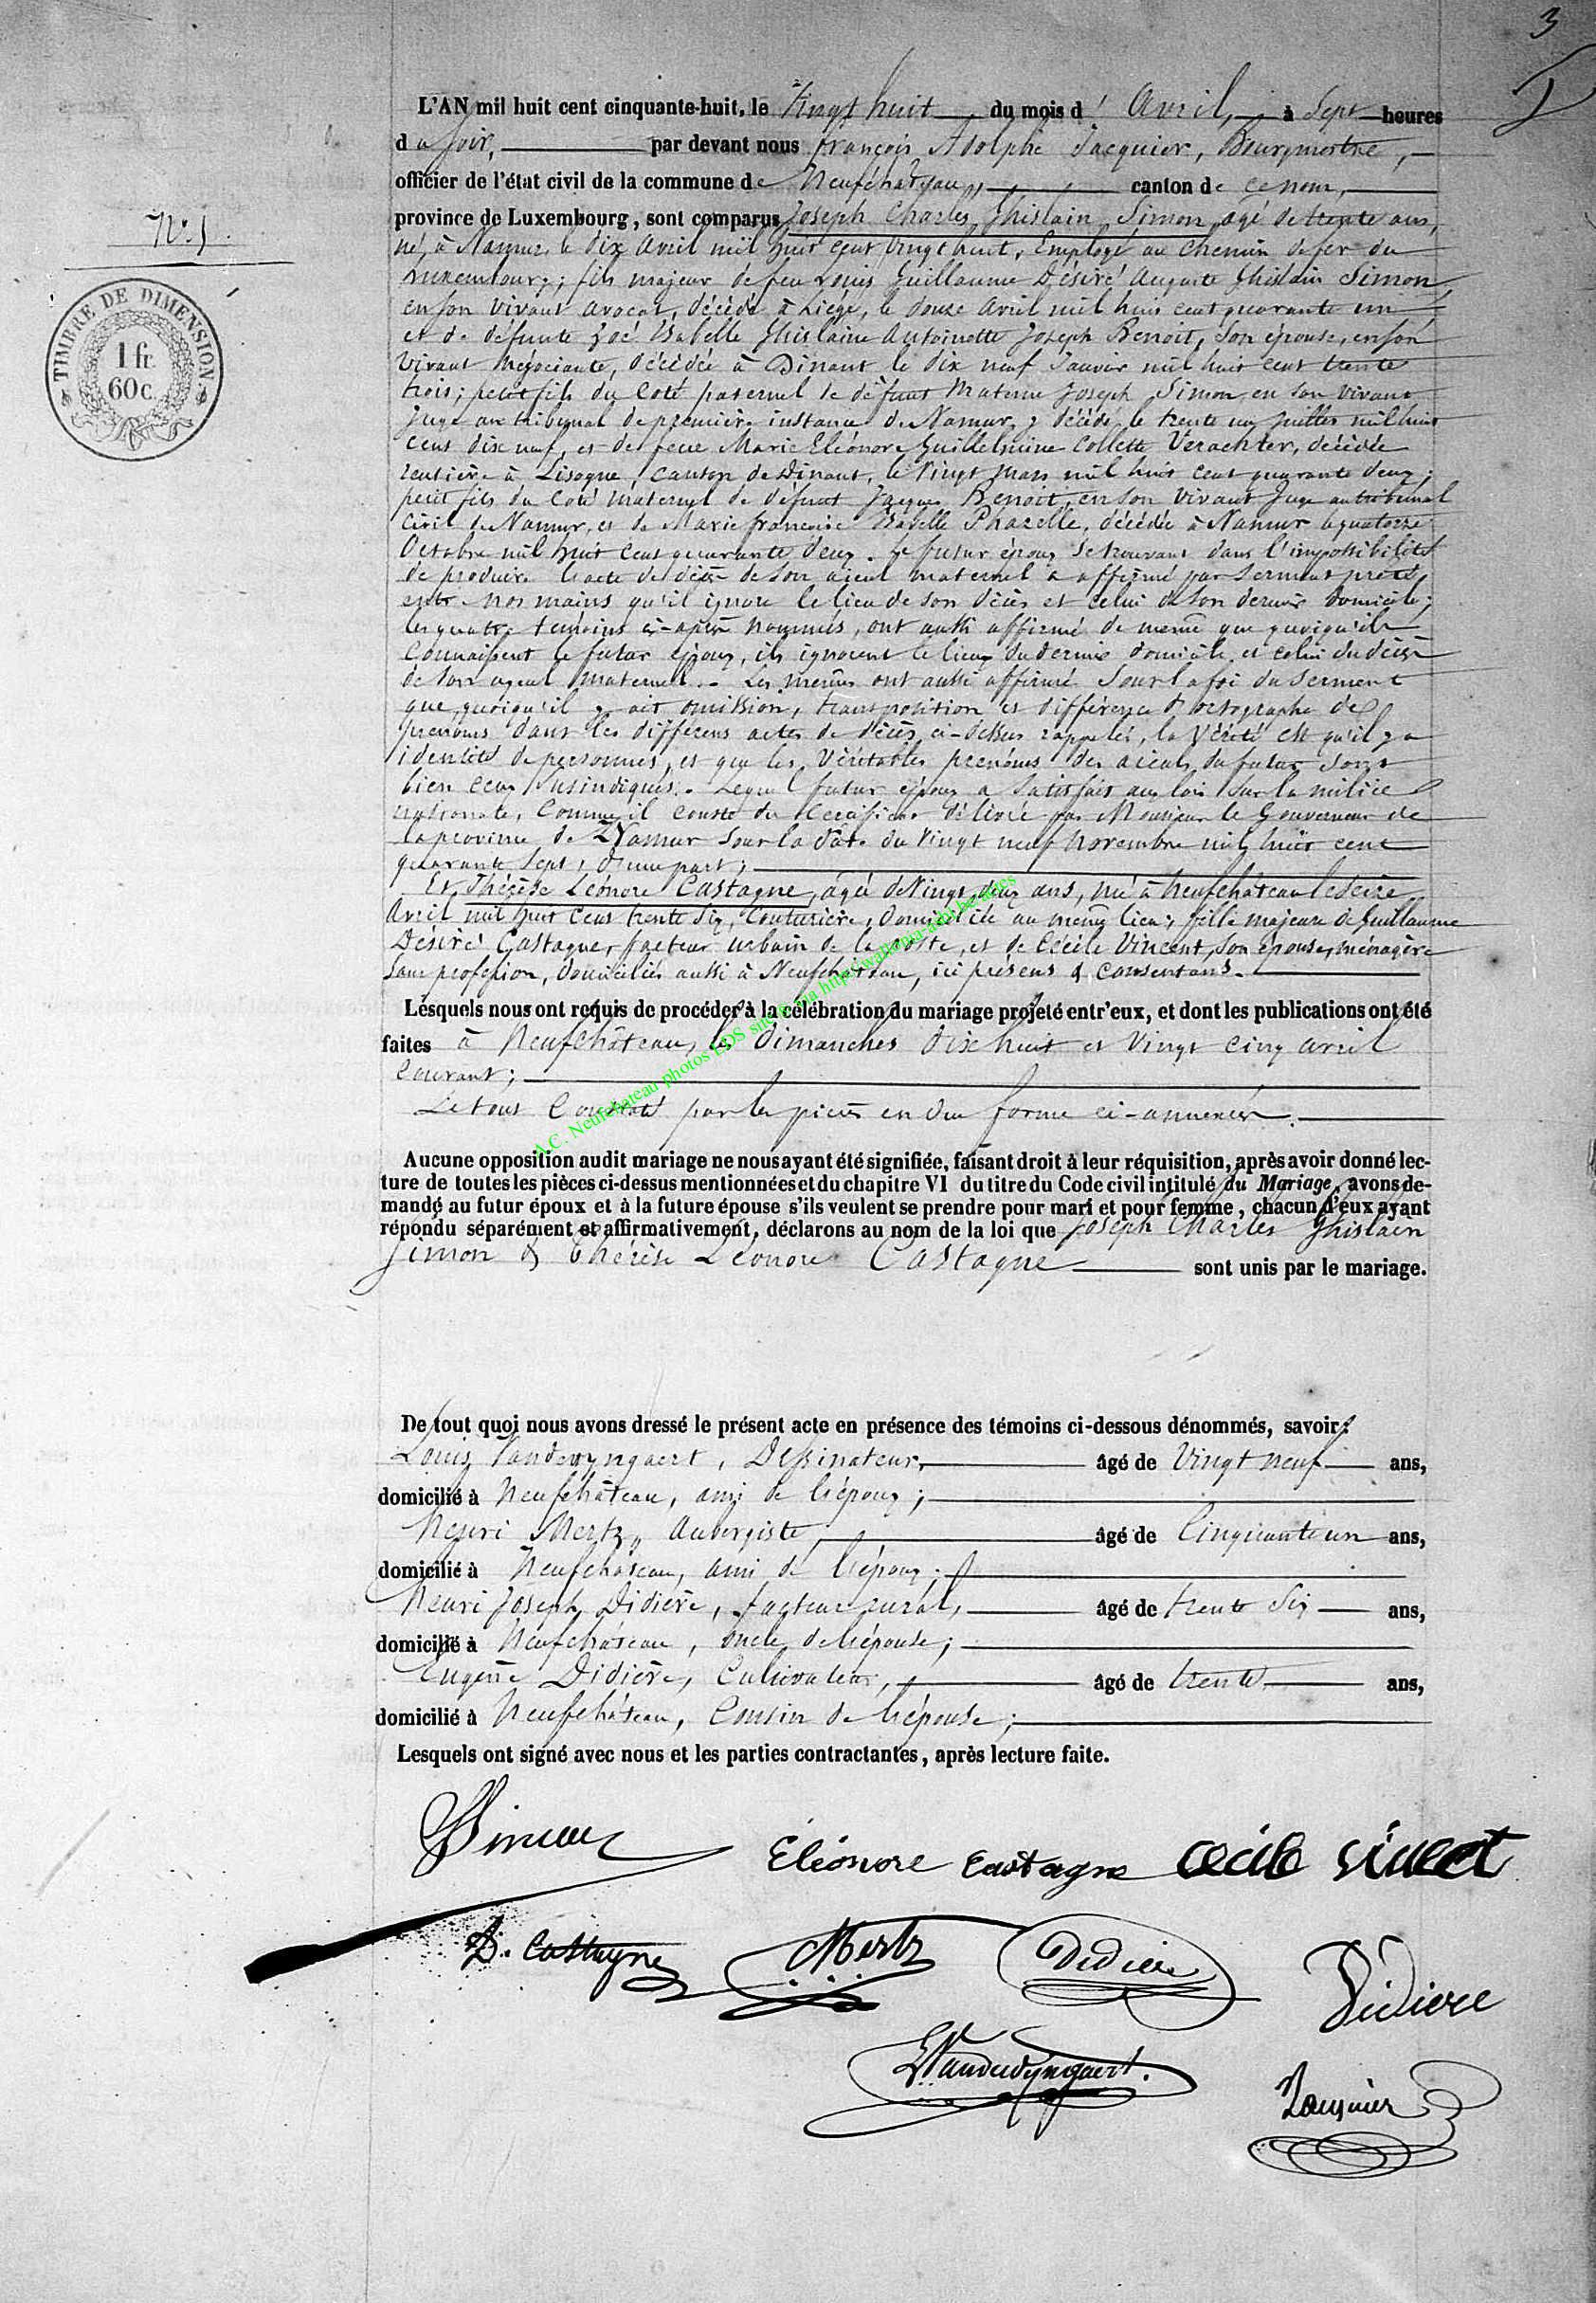 3
L'AN mil huit cent cinquante-huit, le Vingt huit du mois d' Avril, à Sept heures
du soir, par devant nous françois Adolphe Jacquier, Bourgmestre,
officier de l'état civil de la commune de Neufchâteau, canton de ce nom,
province de Luxembourg, sont comparus Joseph Charles Ghislain Simon, agé de trente ans,
né, à Namur, le dix avril mil huit cent vingt huit, Employé au chemin de fer du
Luxembourg; fils majeur de feu Louis Guillaume Désiré Auguste Ghislain Simon
en son vivant avocat, décédé à Liége, le douze avril mil huit cent quarante un
et de défunte Zoé Isabelle Ghislaine Antoinette Joseph Benoit, son épouse, en son
vivant Négociante, décédée à Dinant le dix neuf Janvier mil huit cent trente
trois; petit fils du Coté paternel de défunt Materne Joseph Simon, en son vivant
Juge au tribunal de première instance de Namur, y décédé le trente un juillet mil huit
cent dix neuf, et de feue Marie Eléonore Guillelmine Collette Verachter, décédée
rentière à Lisogne, canton de Dinant, le vingt mars mil huit cent quarante deux;
petit fils du Coté maternel de défunt Jacques Benoit, en son vivant Juge au tribunal
civil de Namur, et de Marie françoise Isabelle Phazelle, décédée à Namur le quatorze
Octobre mil huit cent quarante deux. Le futur époux se trouvant dans l'impossibilité
de produire l'acte de décès de son aieul maternel a affirmé par serment prêté
entre nos mains qu'il ignore le lieu de son décès et celui de son dernier domicile;
les quatre témoins ci-après nommés, ont aussi affirmé de même que quoiqu'ils
connaissent le futur époux, ils ignorent le lieu du dernier domicile et celui du décès
de son ayeul maternel. Les mêmes ont aussi affirmé sous la foi du serment
que, quoiqu'il y ait omission, transposition et différence d'ortographe de
prénoms dans les différens actes de décès ci-dessus rappelés, la vérité est qu'il y a
identité de personnes, et que les véritables prénoms des aieuls du futur sont
bien ceux susindiqués. Lequel futur époux a satisfait aux lois sur la milice
nationale, comme il conste du certificat délivré par Monsieur le Gouverneur de
la province de Namur sous la date du vingt neuf novembre mil huit cent
quarante sept, d'une part;
Et Thérèse Léonore Castagne, agée de vingt deux ans, née à Neufchâteau le seize
avril mil huit cent trente six, Couturière, domiciliée au même lieu; fille majeure de Guillaume
Désiré Castagne, facteur urbain de la poste, et de Cécile Vincent, son épouse, ménagère
sans profession, domiciliés aussi à Neufchâteau, ici présens & consentans.
Lesquels nous ont requis de procéder à la célébration du mariage projeté entr'eux, et dont les publications ont été
faites à Neufchâteau, les dimanches dix huit et vingt cinq avril
courant;
Le tout constaté par les pièces en due forme ci-annexées.
Aucune opposition audit mariage ne nous ayant été signifiée, faisant droit à leur réquisition, après avoir donné lec-
ture de toutes les pièces ci-dessus mentionnées et du chapitre VI du titre du Code civil intitulé du Mariage, avons de-
mandé au futur époux et à la future épouse s'ils veulent se prendre pour mari et pour femme, chacun d'eux ayant
répondu séparément et affirmativement, déclarons au nom de la loi que Joseph Charles Ghislain
Simon & Thérèse Léonore Castagne sont unis par le mariage.
De tout quoi nous avons dressé le présent acte en présence des témoins ci-dessous dénommés, savoir:
Louis Vandewyngaert, Dessinateur, âgé de Vingt neuf ans,
domicilié à Neufchâteau, ami de l'époux;
Henri Mertz, Aubergiste, âgé de Cinquante un ans,
domicilié à Neufchâteau, ami de l'époux;
Henri Joseph Didière, facteur rural, âgé de trente six ans,
domicilié à Neufchâteau, oncle de l'épouse;
Eugène Didière, Cultivateur, âgé de trente ans,
domicilié à Neufchâteau, Cousin de l'épouse;
Lesquels ont signé avec nous et les parties contractantes, après lecture faite.
Simon
Eléonore Castagne Cécile vincent
D. Castagne Mertz Didière Didiere
LVandewyngaert. Jacquier
N° 5.
TIMBRE DE DIMENSION
1 fr.
60 c.